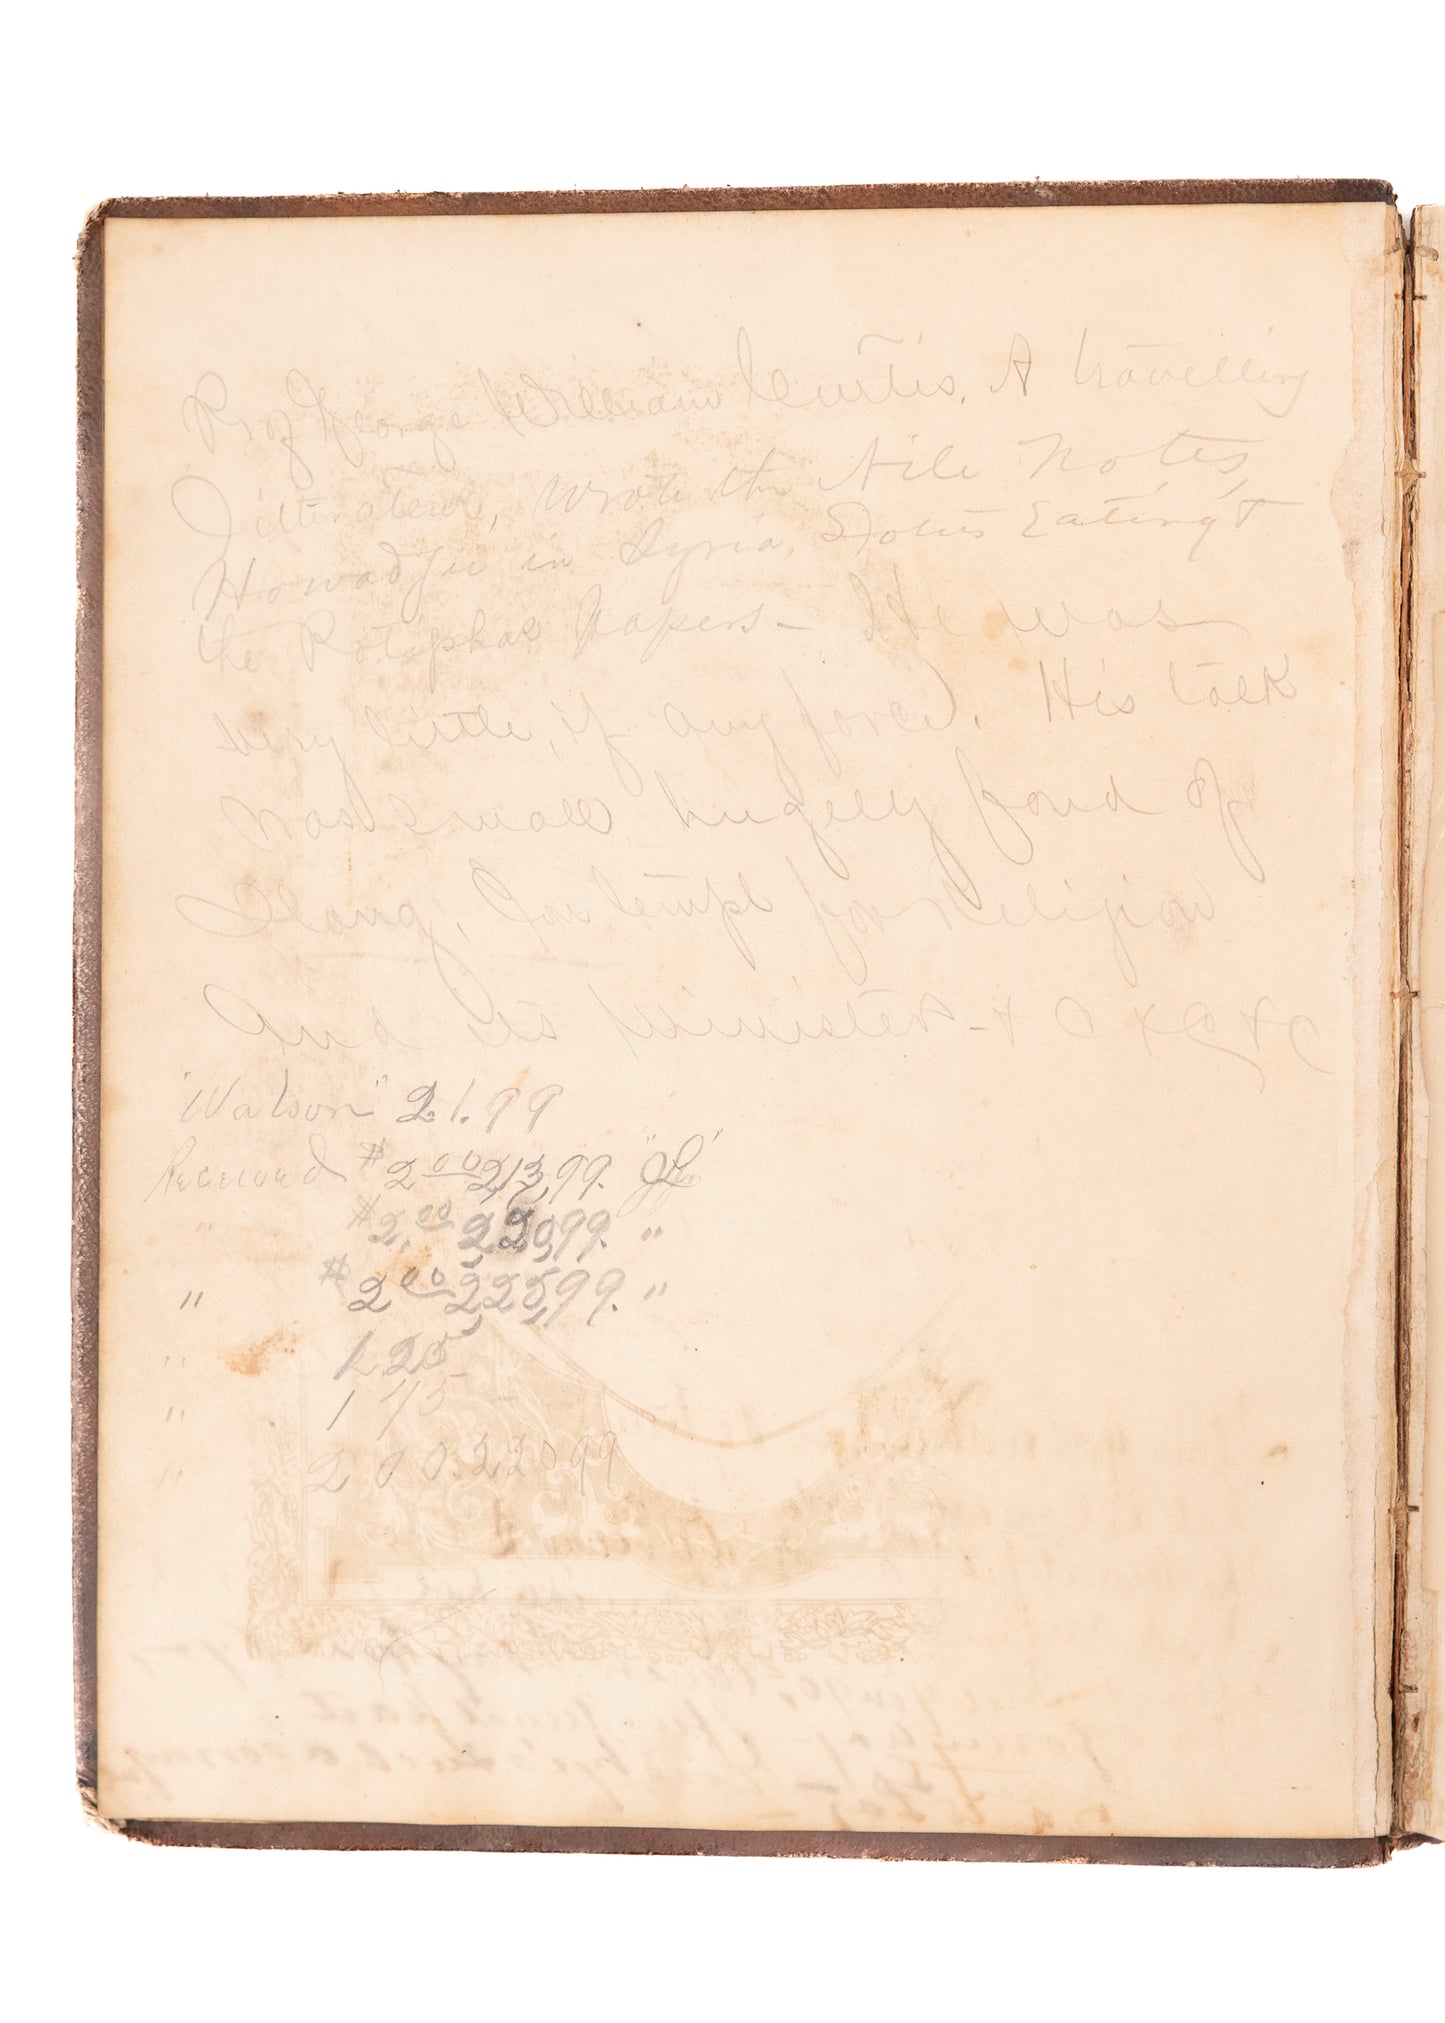 Prof George William Curtis, A travelling
Litterateur, wrote the Nile Notes,
Howadjii in Syria, Lotus Eating &
the Potiphar Papers — He was
very little, if any force. His talk
was small, hugely fond of
Slang, Contempt for Religion
And its Minister - & C & C & C
"Watson" 21.99
Received $2 00 213,99. "JL"
" $2, 00 220,99. "
" $2 00 225,99. "
" 1.25
" 1 75
" 200.22099